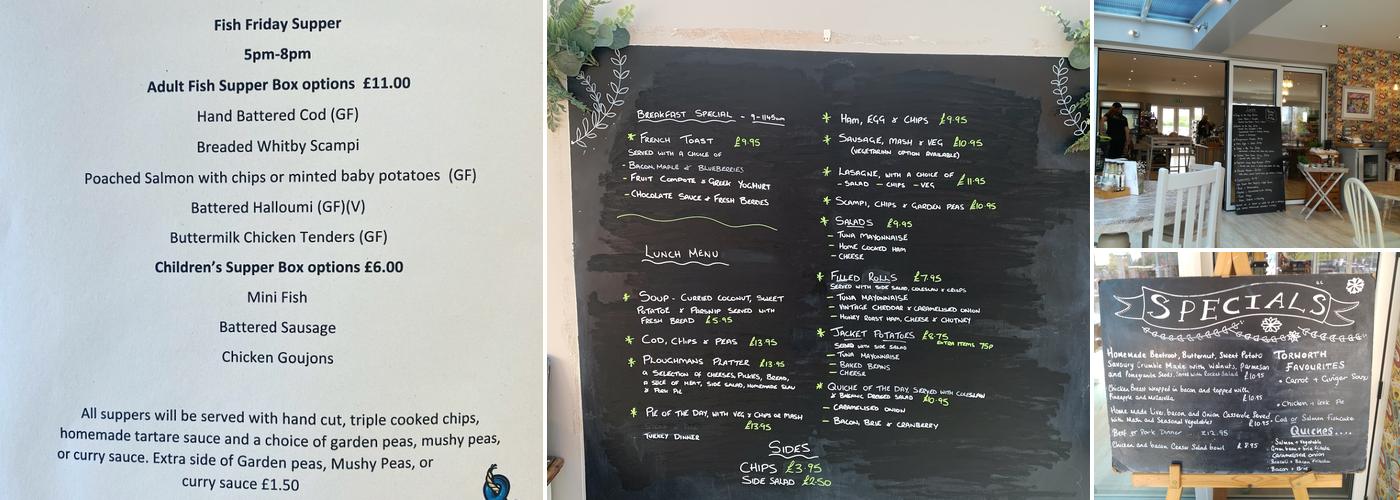 Fish Friday Supper
5pm-8pm
Adult Fish Supper Box options £11.00
Hand Battered Cod (GF)
Breaded Whitby Scampi
Poached Salmon with chips or minted baby potatoes (GF)
Battered Halloumi (GF)(V)
Buttermilk Chicken Tenders (GF)
Children's Supper Box options £6.00
Mini Fish
Battered Sausage
Chicken Goujons
All suppers will be served with hand cut, triple cooked chips,
homemade tartare sauce and a choice of garden peas, mushy peas,
or curry sauce. Extra side of Garden peas, Mushy Peas, or
curry sauce £1.50
BREAKFAST SPECIAL - 9-1145am
* FRENCH TOAST £9.95
SERVED WITH A CHOICE OF
- BACON, MAPLE & BLUEBERRIES
- FRUIT COMPOTE & GREEK YOGHURT
- CHOCOLATE SAUCE & FRESH BERRIES
LUNCH MENU
* SOUP - CURRIED COCONUT, SWEET
POTATOE & PARSNIP SERVED WITH
FRESH BREAD £5.95
* COD, CHIPS & PEAS £13.95
* PLOUGHMANS PLATTER £13.95
A SELECTION OF CHEESES, PICKLES, BREAD,
A SLICE OF MEAT, SIDE SALAD, HOMEMADE SLAW
& PORK PIE
* PIE OF THE DAY, WITH VEG & CHIPS OR MASH
£13.95
TURKEY DINNER
* HAM, EGG & CHIPS £9.95
* SAUSAGE, MASH & VEG £10.95
(VEGETARIAN OPTION AVAILABLE)
* LASAGNE, WITH A CHOICE OF
- SALAD - CHIPS - VEG £11.95
* SCAMPI, CHIPS & GARDEN PEAS £10.95
* SALADS £9.95
- TUNA MAYONNAISE
- HOME COOKED HAM
- CHEESE
* FILLED ROLLS £7.95
SERVED WITH SIDE SALAD, COLESLAW & CRISPS
- TUNA MAYONNAISE
- VINTAGE CHEDDAR & CARAMELISED ONION
- HONEY ROAST HAM, CHEESE & CHUTNEY
* JACKET POTATOES £8.75
SERVED WITH SIDE SALAD EXTRA ITEMS 75P
- TUNA MAYONNAISE
- BAKED BEANS
- CHEESE
* QUICHE OF THE DAY SERVED WITH COLESLAW
& BALSAMIC DRESSED SALAD £10.95
- CARAMELISED ONION
- BACON, BRIE & CRANBERRY
SIDES
CHIPS £3.95
SIDE SALAD £2.50
SPECIALS
Homemade Beetroot, Butternut, Sweet Potato
Savoury Crumble Made with Walnuts, Parmesan
and Pomegranate Seeds. Served with Rocket Salad £10.95
Chicken Breast wrapped in bacon and topped with
Pineapple and Mozzarella £10.95
Home made Liver, bacon and Onion Casserole Served
with Mash and Seasonal Vegetables £10.95
Beef or Pork Dinner ... £12.95
Chicken and bacon Ceasar Salad bowl £8.95
TORWORTH
FAVOURITES
• Carrot + Ginger Soup
• Chicken + Leek Pie
• Cod or Salmon Fishcake
Quiches....
Salmon + Vegetable
Caramelised onion
Bacon + Brie